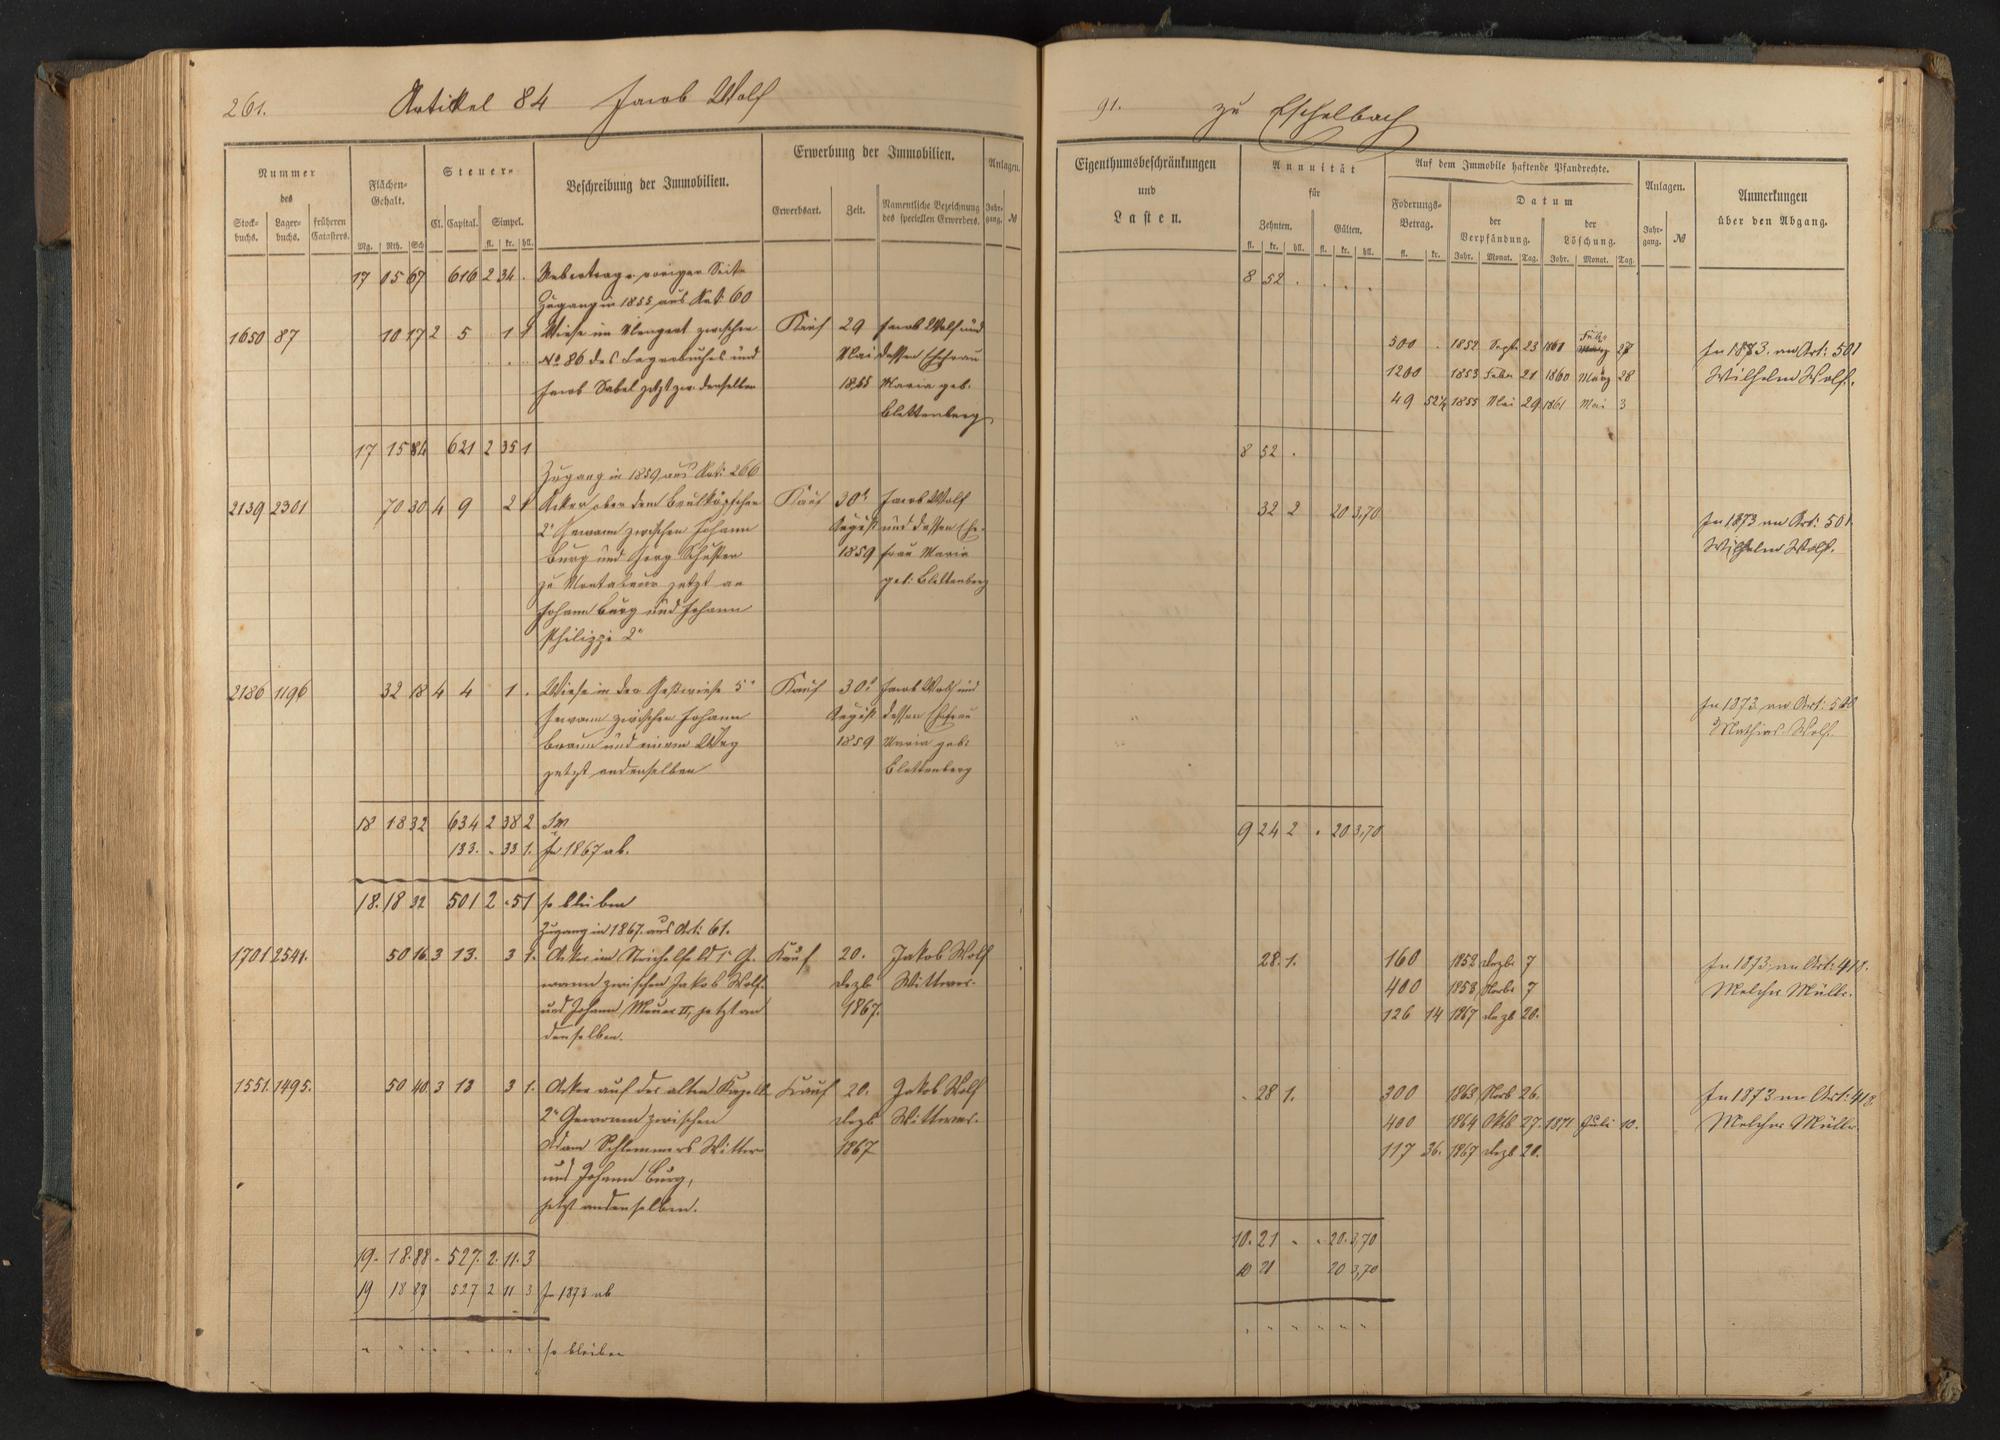 261. Artikel 84 Jacob Wolf
Nummer
des
Stock-
buchs.
Lager-
buchs.
früheren
Catasters.
Flächen-
Gehalt.
Mg. Rth. Sch
Steuer-
Cl. Capital. Simpel.
fl. kr. hll.
Beschreibung der Immobilien.
Erwerbung der Immobilien.
Erwerbsart. Zeit.
Namentliche Bezeichnung
des speciellen Erwerbers.
Anlagen.
Jahr-
gang. №
17 05 67 616 2 34 . Uebertrag v. voriger Seite
Zugang in 1855 aus Art: 60
1650 87 10 17 2 5 1 1 Wiese im zwischen Kauf 29 Jacob Wolf und
№ 86 des Lagerbuches und Mai dessen Ehefrau
Jacob Sabel jetzt zw. denselben 1855 Maria geb.
Blettenberg
17 15 84 621 2 35 1
Zugang in 1859 aus Art: 266
2139 2301 70 30 4 9 2 1 Acker ober dem Kauf 30t Jacob Wolf
2r Gewann zwischen Johann August und dessen Ehe-
Burg und Georg Schuster 1859 frau Maria
zu Montabaur jetzt an geb: Blettenberg
Johann Burg und Johann
Philippi 2r
2186 1196 32 18 4 4 1 . Wiese in der 5r Kauf 30t Jacob Wolf und
Gewann zwischen Johann August dessen Ehefrau
Braun und einem Weg 1859 Maria geb:
jetzt an denselben Blettenberg
18 18 32 634 2 38 2
133. - 33 1. In 1867 ab.
18. 18 32 501 2 . 5 1 so bleiben
Zugang in 1867 aus Art: 61.
1701 2541. 50 16 3 13. 3 1. Acker im 1r Ge- Kauf 20. Jakob Wolf
wann zwischen Jakob Wolf Dezb Wittwer.
und Johann Meuer II, jetzt an 1867.
denselben.
1551. 1495. 50 40. 3 13 3 1. Acker auf der alten Kapell Kauf 20. Jakob Wolf
2r Gewann zwischen Dezb Wittwer.
Adam Schlemmers Wittwe 1867
und Johann Burg,
jetzt an denselben.
19. 18. 88 - 527. 2. 11. 3
19 18 88 527 2 11 3 In 1873 ab
" " " " " " " so bleiben
91. zu Eschelbach
Eigenthumsbeschränkungen
und
Lasten.
Annuität
für
Zehnten. Gülten.
fl. kr. hll. fl. kr. hll.
Auf dem Immobile haftende Pfandrechte.
Foderungs-
Betrag.
fl. kr.
Datum
der
Verpfändung.
Jahr. Monat. Tag.
der
Löschung.
Jahr. Monat. Tag.
Anlagen.
Jahr-
gang. №
Anmerkungen
über den Abgang.
8 52 . . . .
300 . 1852 Sept 23 1860 Febr. 27 In 1873. an Art: 501
1200 1853 Febr 21 1860 März 28 Wilhelm Wolf.
49 52¼ 1855 Mai 29 1861 Mai 3
8 52 .
32 2 20 3,70 In 1873 an Art: 501
Wilhelm Wolf.
In 1873 an Art: 500
Mathias Wolf.
9 24 2 . 20 3,70
28. 1. 160 1852 Dezb. 7 In 1873 an Art: 418.
400 1858 Novbr 7 Melchior Müller.
126 14 1867 Dezb 20.
- 28 1. 300 1863 Novb 26. In 1873 an Art: 418.
400 1864 Oktb 27. 1871 Juli 10. Melchior Müller.
117 36. 1867 Dezb 20.
10. 21 - - 20. 3,70
10 21 20 3,70
" " " " " "